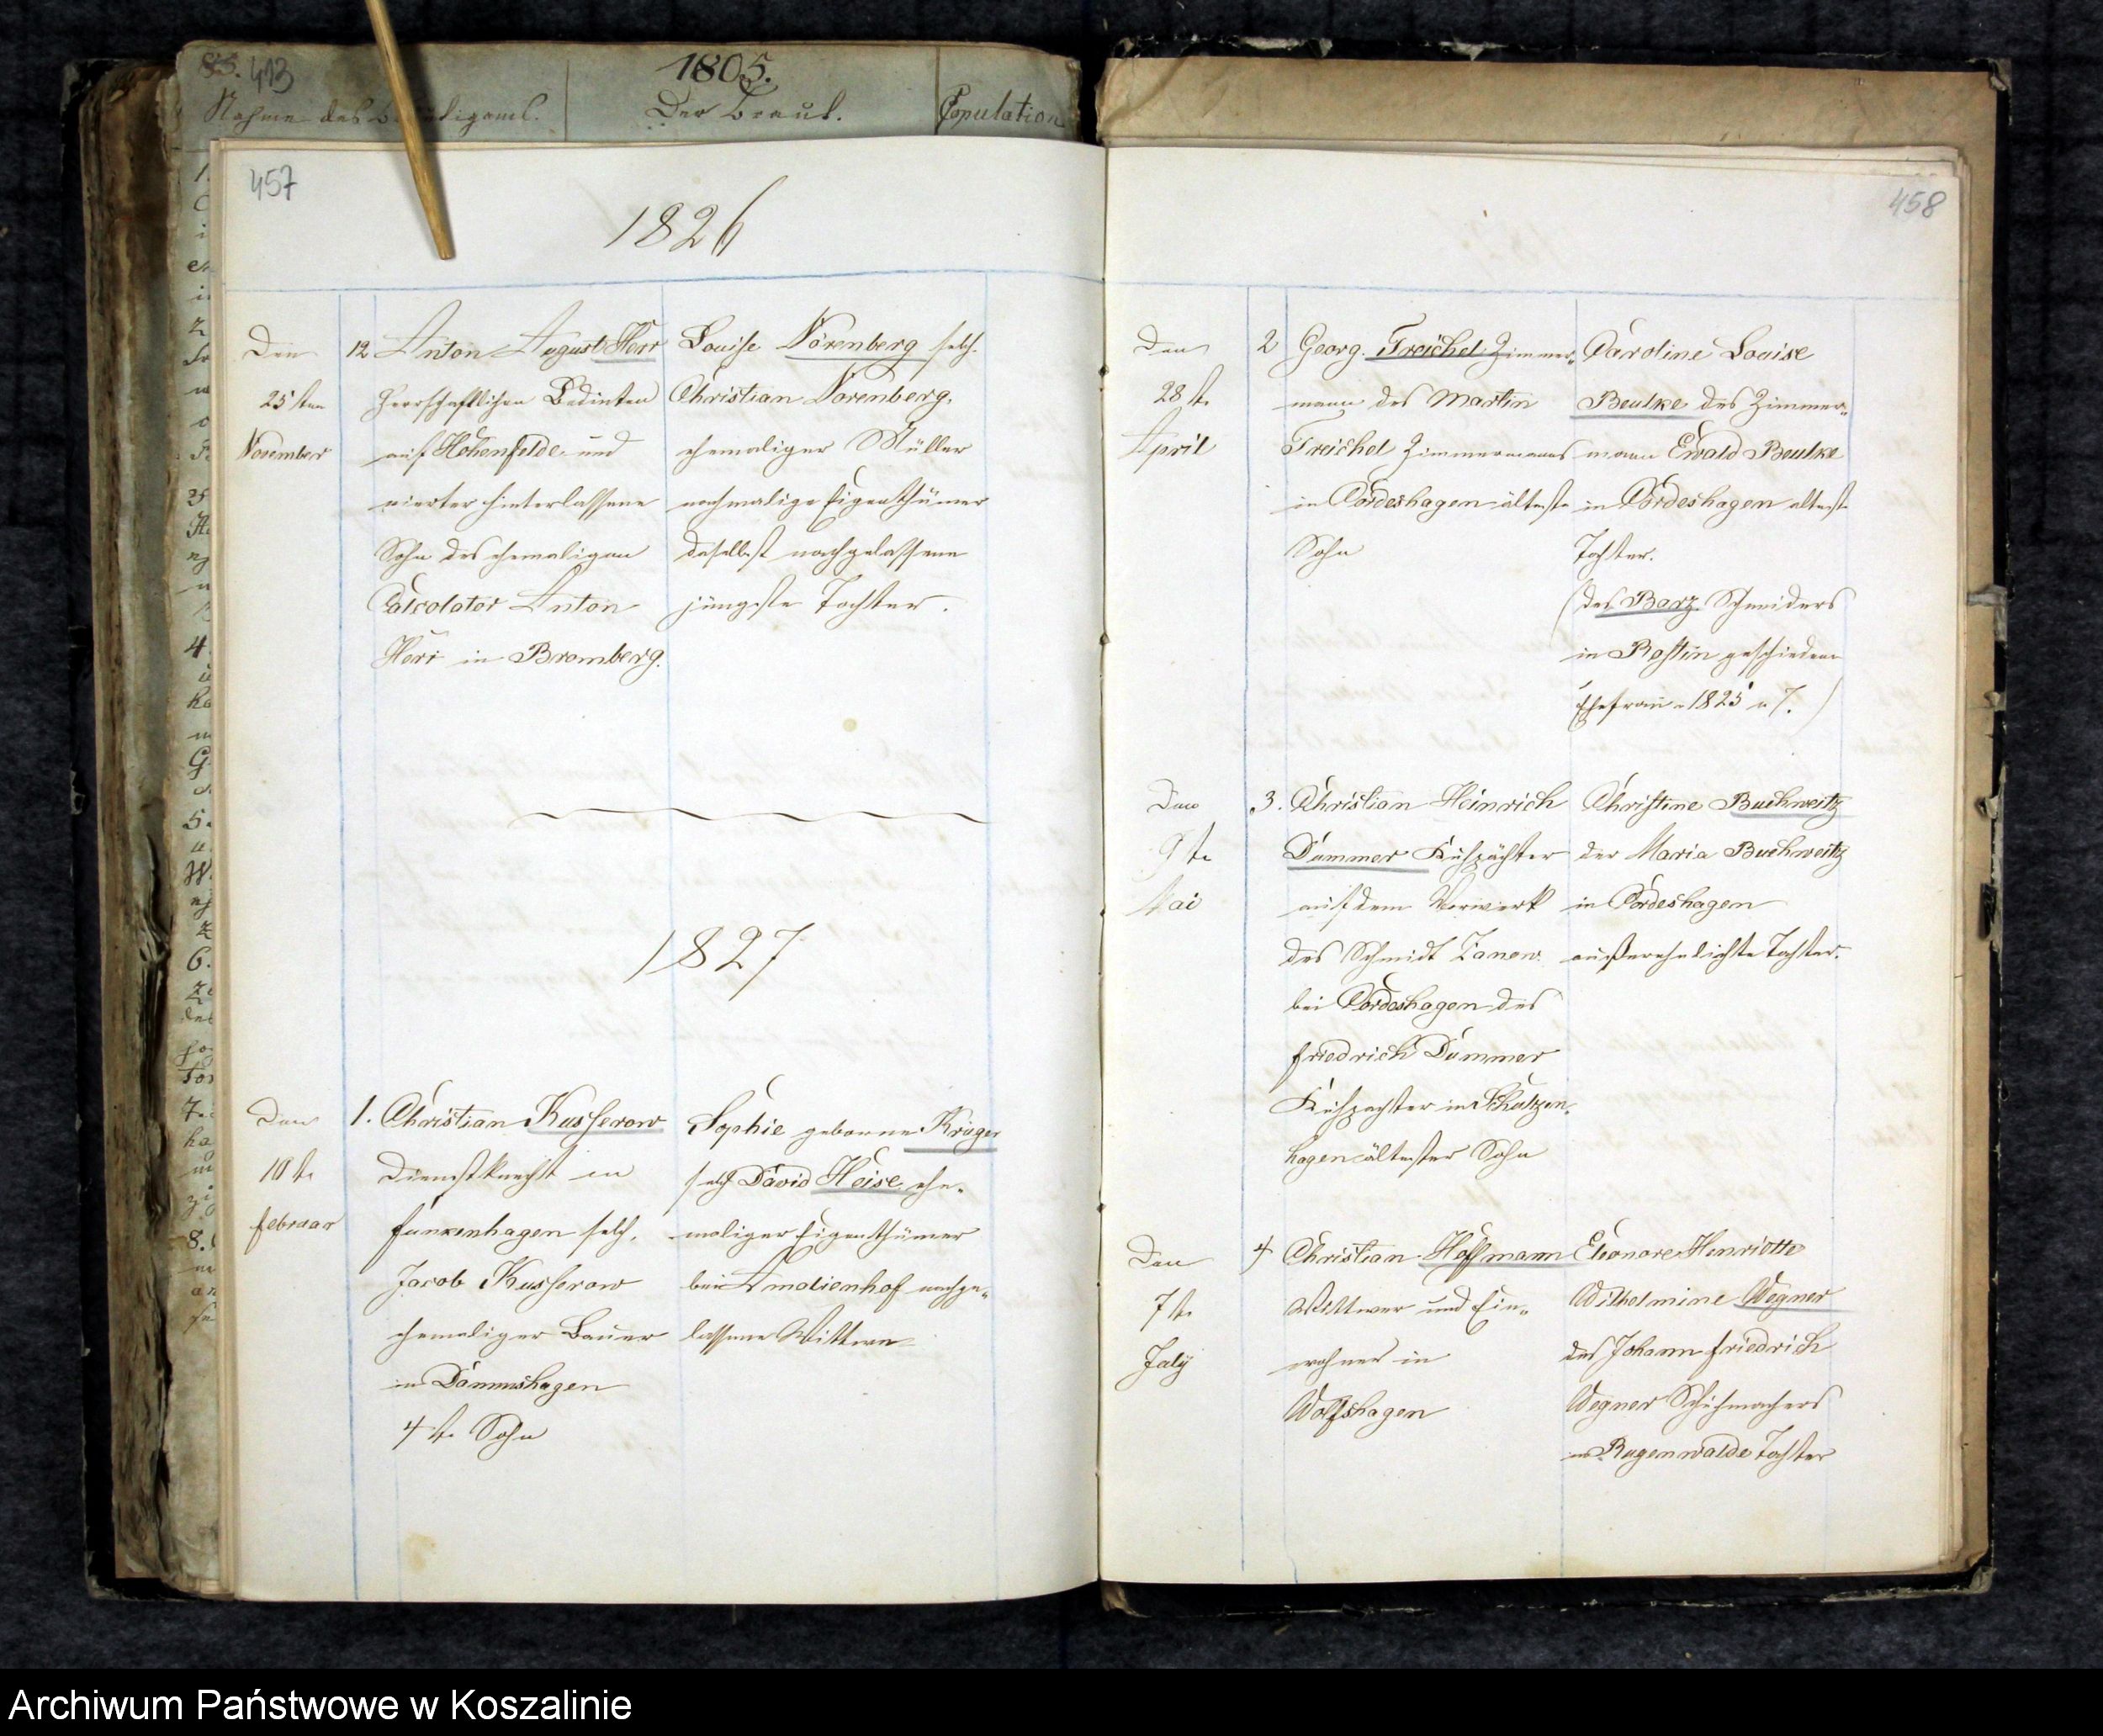 413
1805.
Nahme des Bräutigams.
Der Braut.
Copulation
457
1826
Den
25sten
November
12
Anton August Herr
herrschaftlichen Bedienten
auf Hohenfelde und
vierter hinterlassene
Sohn des ehemaligen
Calculator Anton
Herr in Bromberg.
Louise Nörenberg selh.
Christian Norenberg,
ehemaliger Müller
nachmalige Eigenthümer
daselbst nachgelassene
jüngste Tochter.
1827
Den
10te
februar
1.
Christian Kusserow
Dienstknecht in
funkenhagen selh.
Jacob Kusserow
ehemaliger Bauer
in Dammshagen
4te Sohn
Sophie geborne Krüger
selh David Heise ehe„
maliger Eigenthümer
bei Amalienhof nachge„
lassene Wittwe
458
Den
28te
April
2
Georg Treichel Zimmer„
mann des Martin
Treichel Zimmermanns
in Cordeshagen älteste
Sohn
Caroline Louise
Beulke des Zimmer„
mann Ewald Beulke
in Cordeshagen alteste
Tochter.
(des Barz Schneiders
in Rostin geschiedene
Ehefrau 1825 7.)
Den
9te
Mai
3.
Christian Heinrich
Dummer Kuhpächter
auf dem Vorwerk
des Schmidt Zanow
bei Cordeshagen des
friedrich Dummer
Kuhpachter in Schulzen„
hagen ältester Sohn
Christine Buchweitz
der Maria Buchweitz
in Cordeshagen
außerehelichte Tochter.
Den
7te
July
4
Christian Hoffmann
Wittwer und Ein„
wohner in
Wolfshagen
Eleonore Henriette
Wilhelmine Wegner
des Johann friedrich
Wegner Schuhmachers
in Rugenwalde Tochter
Archiwum Państwowe w Koszalinie